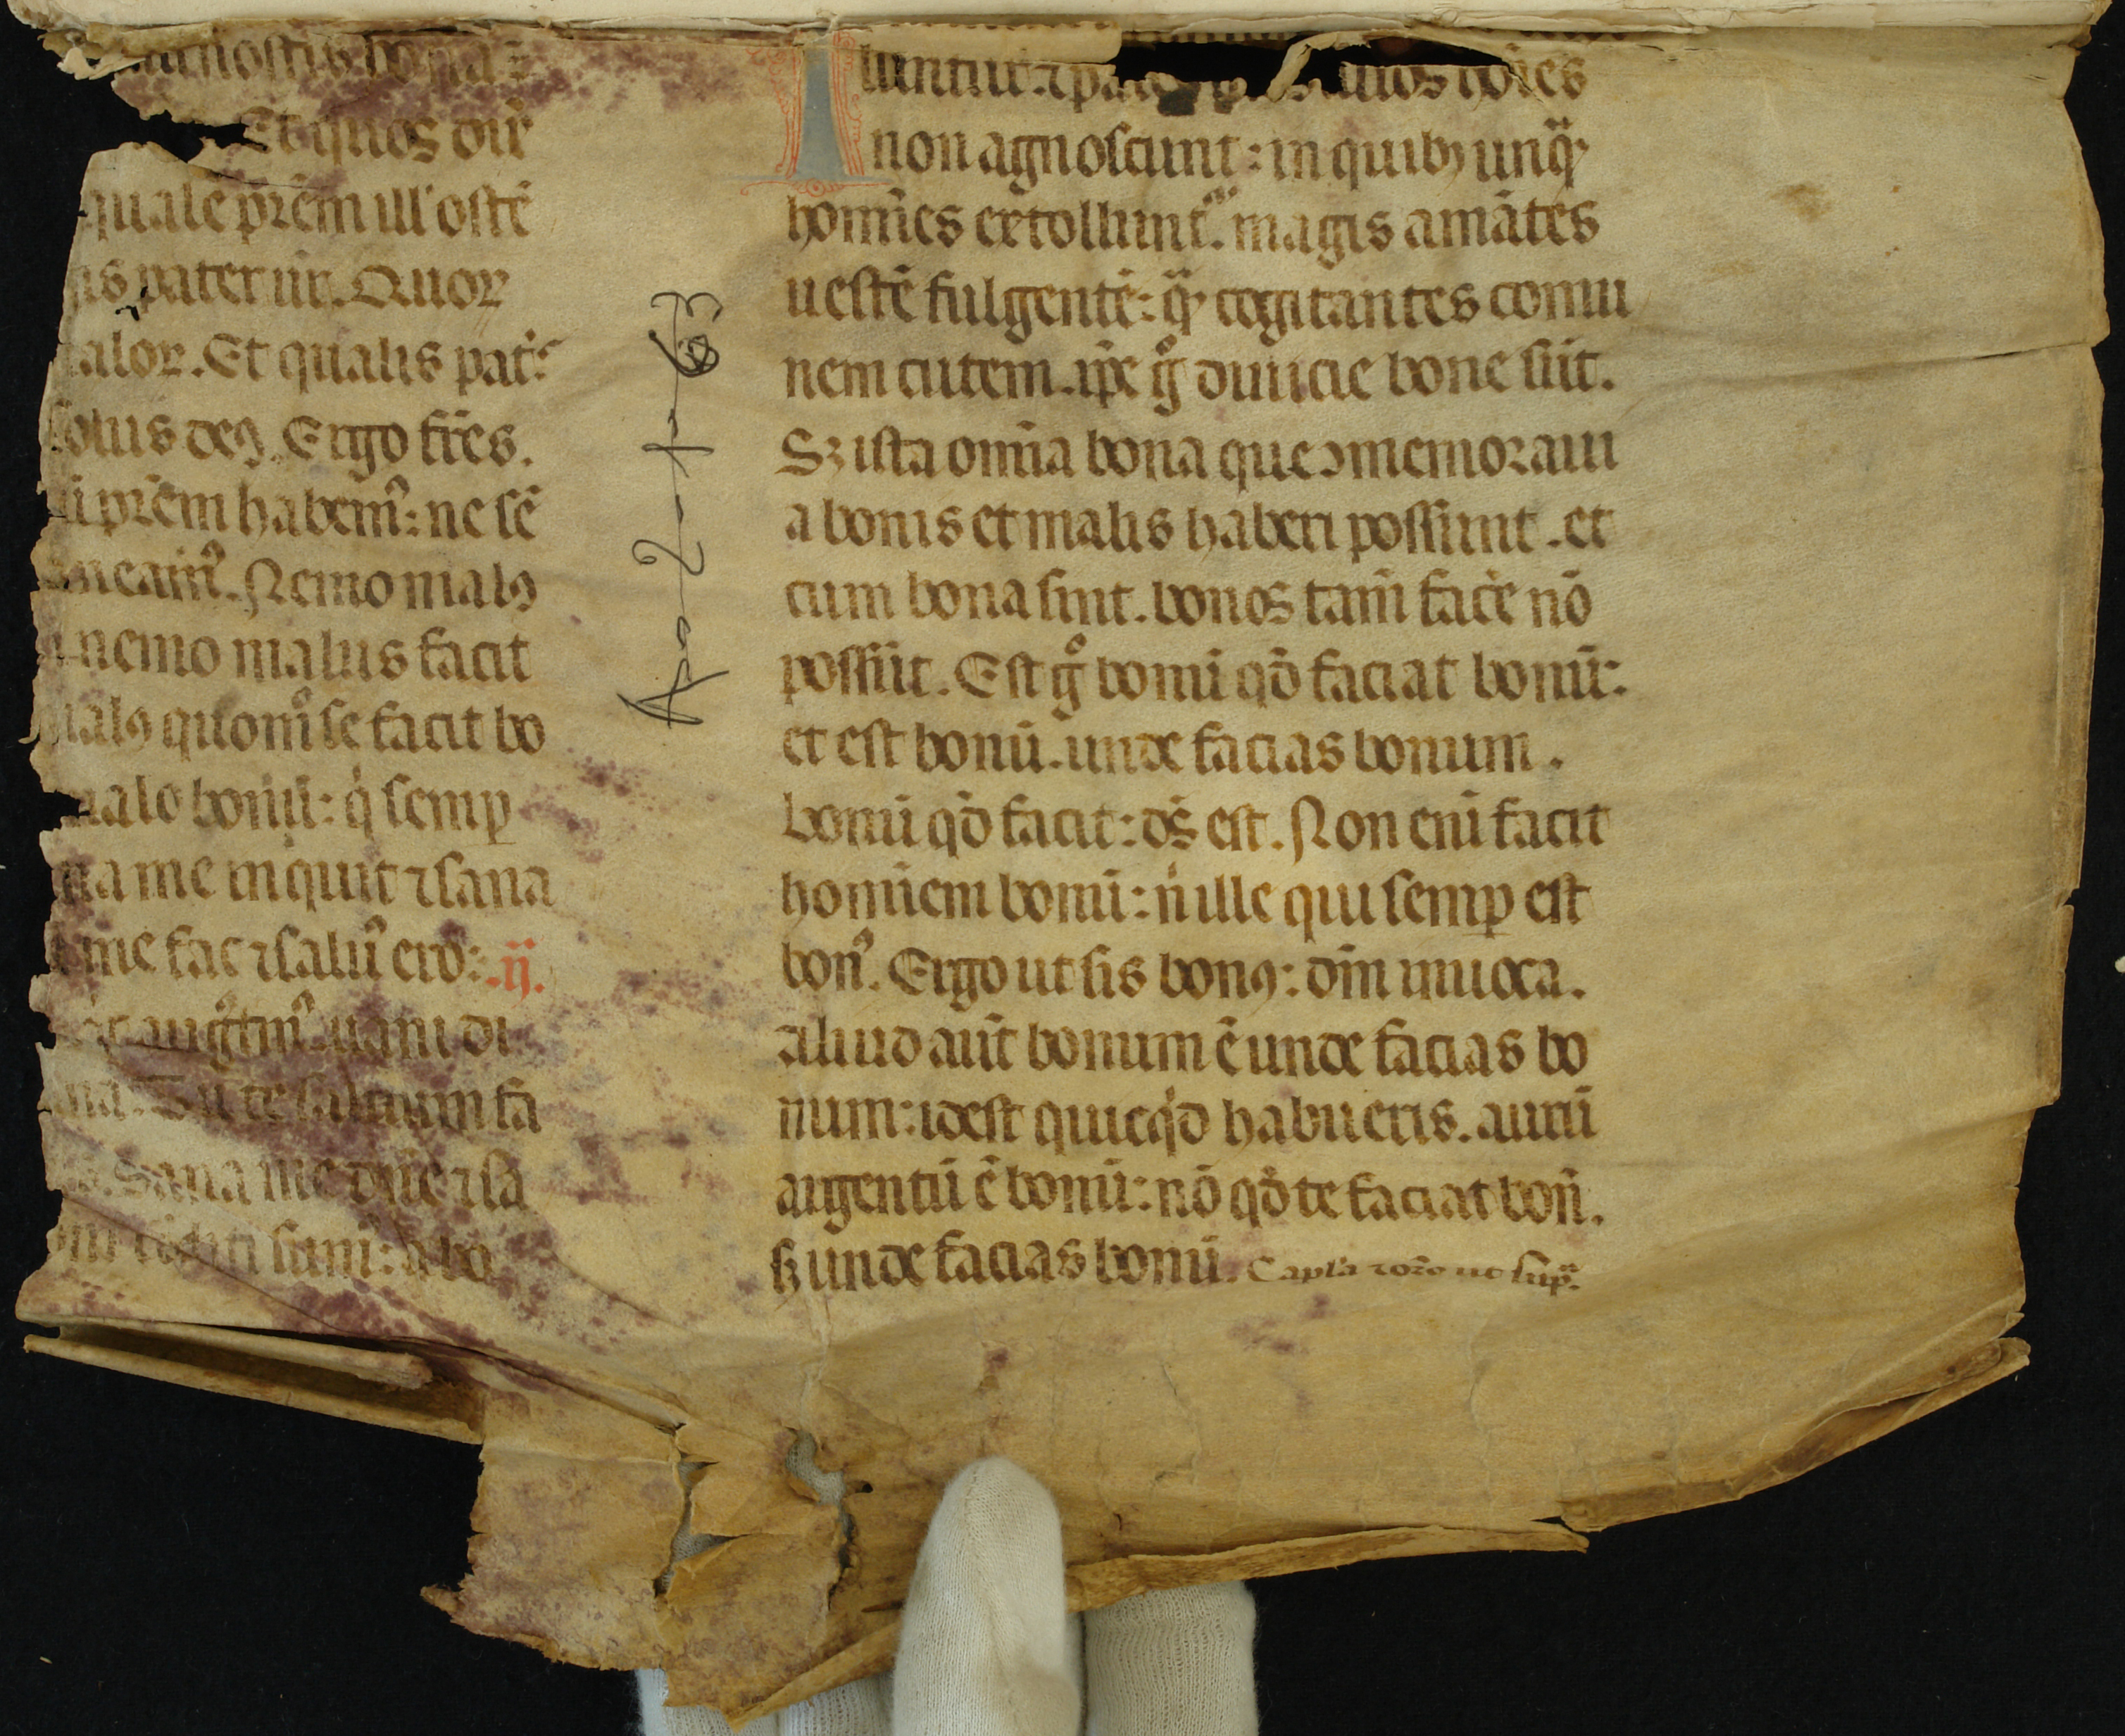 Et quos dix̄
quale pr̄em ill' ostē
pater ur̄. Quoꝝ
maloꝝ. Et qualis pat̄
solus deꝰ. Ergo fr̄es.
pr̄em habemꝰ: ne sē
neamꝰ. Nemo malꝰ
nemo malus facit
malꝰ quom̊ se facit bo
malo bonū: q̇ semꝑ
na me inquit ⁊ sana
me fac ⁊ saluꝰ ero: .ij.
augꝰtinꝰ. uani di
Tu te saluum fa
Sana me dn̄e ⁊ sa
sum: a bo
A-2-1-63
luntur. ⁊ hoīes
non agnoscunt: in quibꝫ unqᷓ
homīes extolluntᷣ. magis amātes
uestē fulgentē: qᷓ cogitantes comu
nem cutem. ip̄e gͦ diuicie bone sūt.
Sꝫ ista omīa bona que ꝯmemoraui
a bonis et malis haberi possunt. et
cum bona sint. bonos tam̄ facēe nō
possūt. Est gͦ bonū qd̄ faciat bonū:
et est bonū. unde facias bonum.
bonū qd̄ facit: ds̄ est. Non enī facit
hominem bonū: n̄ ille qui semꝑ est
bonꝰ. Ergo ut sis bonꝰ: dm̄ inuoca.
Aliud aūt bonum ē unde facias bo
num: idest quicqd̄ habueris. aurū
argentū ē bonū: nō qd̄ te faciat bon̄.
sꝫ unde facias bonū. Capl'a ⁊ oro ut supᷓ.